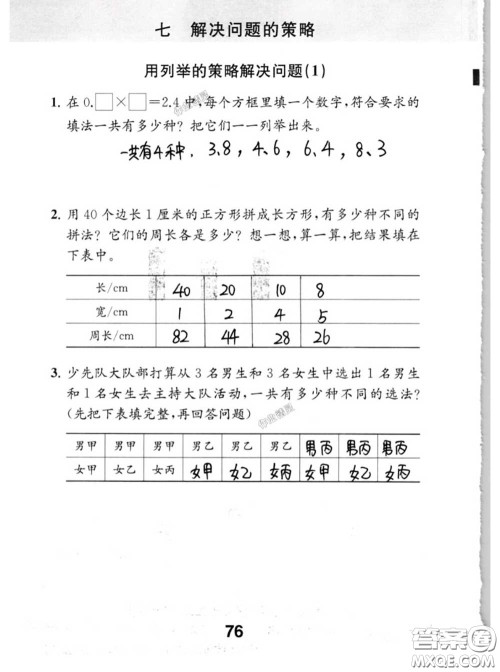 七 解决问题的策略
用列举的策略解决问题(1)
1. 在 0.□×□=2.4 中,每个方框里填一个数字,符合要求的
填法一共有多少种? 把它们一一列举出来。
一共有4种, 3、8, 4、6, 6、4, 8、3
2. 用 40 个边长 1 厘米的正方形拼成长方形,有多少种不同的
拼法? 它们的周长各是多少? 想一想,算一算,把结果填在
下表中。
长/cm 40 20 10 8
宽/cm 1 2 4 5
周长/cm 82 44 28 26
3. 少先队大队部打算从 3 名男生和 3 名女生中选出 1 名男生
和 1 名女生去主持大队活动,一共有多少种不同的选法?
(先把下表填完整,再回答问题)
男甲 男甲 男甲 男乙 男乙 男乙 男丙 男丙 男丙
女甲 女乙 女丙 女甲 女乙 女丙 女甲 女乙 女丙
76
答案圈
MXQE.COM